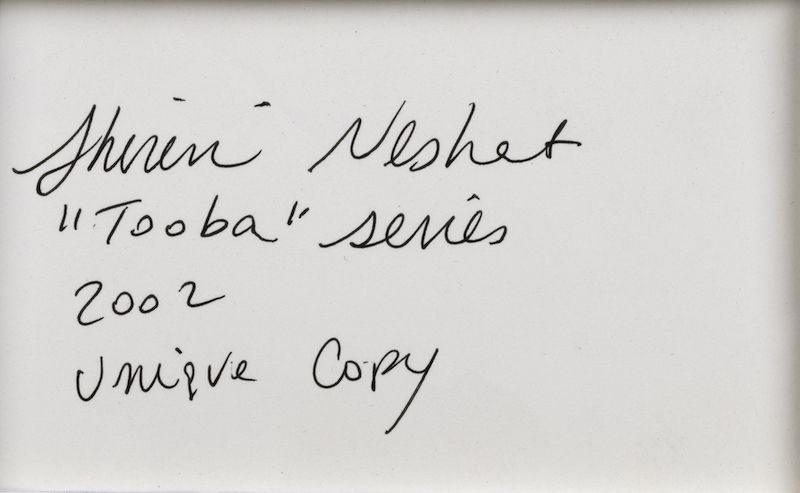 Shirin Neshat
"Tooba" series
2002
Unique Copy